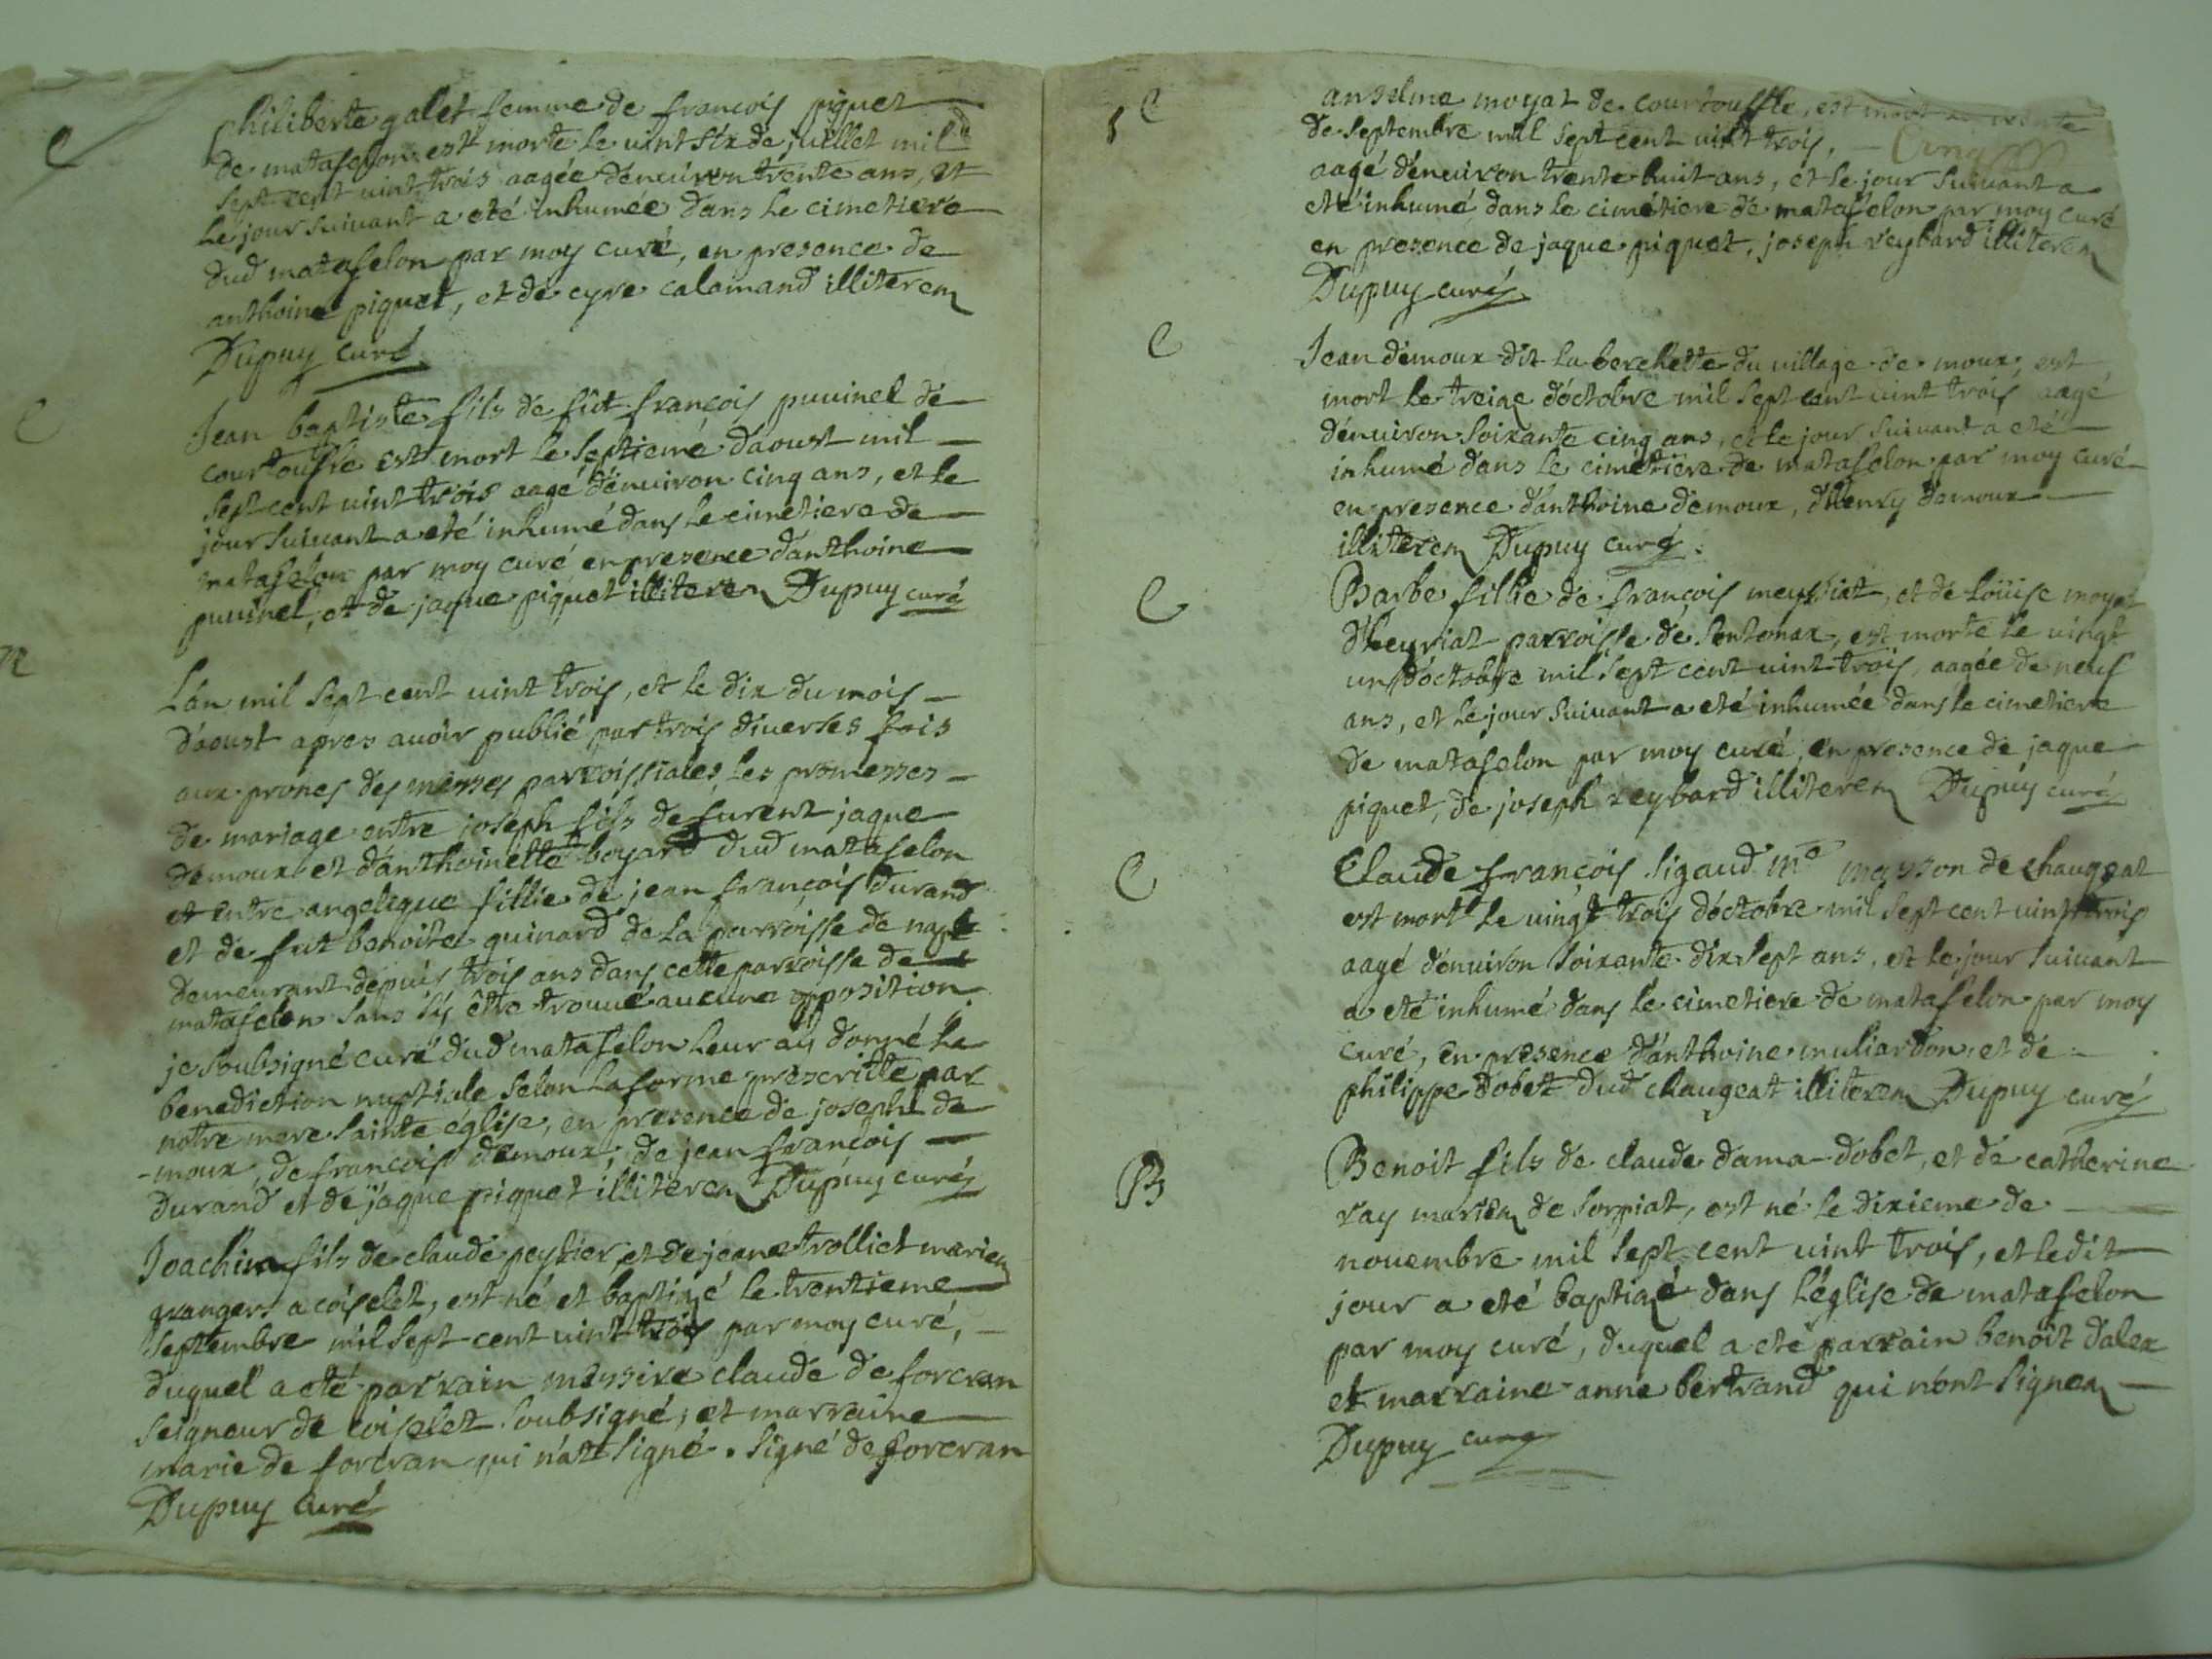 C
philiberte galet femme de françois piquet
de matafelon est morte le uint six de juillet mil
sept cent uint trois aagée d'enuiron trente ans, et
le jour suiuant a eté inhumée dans le cimetiere
dud matafelon par moy curé, en presence de
anthoine piquet, et de cyre calamand illiterem
Dupuy curé
C
Jean baptiste fils de fût françois puuinel de
courtoufle est mort le septiemé d'aoust mil
sept cent uint trois aagé d'enuiron cinq ans, et le
jour suiuant a eté inhumé dans le cimetiere de
matafelon par moy curé en presence d'anthoine
puuinel, et de jaque piquet illiterem Dupuy curé
L'an mil sept cent uint trois, et le dix du mois
d'aoust apres auoir publié par trois diuerses fois
aux prônes des messes parroissiales, les promesses
de mariage entre joseph fils de furent jaque
demoux et d'anthoinette boyard dud matafelon
et entre angelique fillie de jean françois durand
et de fut benoite guinard de la parroisse de
demeurant depuis trois ans dans cette parroisse de
matafelon sans s'y être trouué aucune opposition
je soubsigné curé dud matafelon leur ay donné la
benediction nuptiale selon la forme prescritte par
notre mere sainte église, en presence de joseph de
-moux, de françois demoux, de jean françois
durand et de jaque piquet illiterem Dupuy curé
Joachim fils de claude peytier, et de jeane trolliet mariem
grangers a coiselet, est né et baptizé le trentieme
septembre mil sept cent uint trois par moy curé,
duquel a eté parrain messire claude de forcran
seigneur de coiselet soubsigné, et marraine
marie de forcran qui n'at signé. Signé de forcran
Dupuy curé
C
anselme moyat de courtouffle, est mort le trente
de septembre mil sept cent uint trois,
aagé d'enuiron trente huit ans, et le jour suiuant a
eté inhumé dans le cimétiere de matafelon par moy curé
en presence de jaque piquet, joseph reybard illiterem
Dupuy curé
C
Jean demoux dit la berchette du uillage de moux, est
mort le treize d'octobre mil sept cent uint trois aagé
d'enuiron soixante cinq ans, et le jour suiuant a eté
inhumé dans le cimétiere de matafelon par moy curé
en presence d'anthoine demoux, d'henry demoux
illiterem Dupuy curé.
C
Barbe fillie de françois meyssiat, et de loüise moyat
d'heyriat parroisse de sontonax, est morte le uingt
un d'octobre mil sept cent uint trois, aagée de neuf
ans, et le jour suiuant a eté inhumée dans le cimetiere
de matafelon par moy curé, en presence de jaque
piquet, de joseph reybard illiterem Dupuy curé
C
Claude françois sigaud me masson de chaugeat
est mort le uingt trois d'octobre mil sept cent uint trois
aagé d'enuiron soixante dix sept ans, et le jour suiuant
a eté inhumé dans le cimetiere de matafelon par moy
curé, en presence d'anthoine muliardon, et de
philippe dobet dud chaugeat illiterem Dupuy curé
B
Benoit fils de claude dama-dobet, et de catherine
ray mariem de sorpiat, est né le dixieme de
nouembre mil sept cent uint trois, et ledit
jour a eté baptizé dans l'église de matafelon
par moy curé, duquel a eté parrain benoît dalex
et marraine anne bertrand qui n'ont signem
Dupuy curé